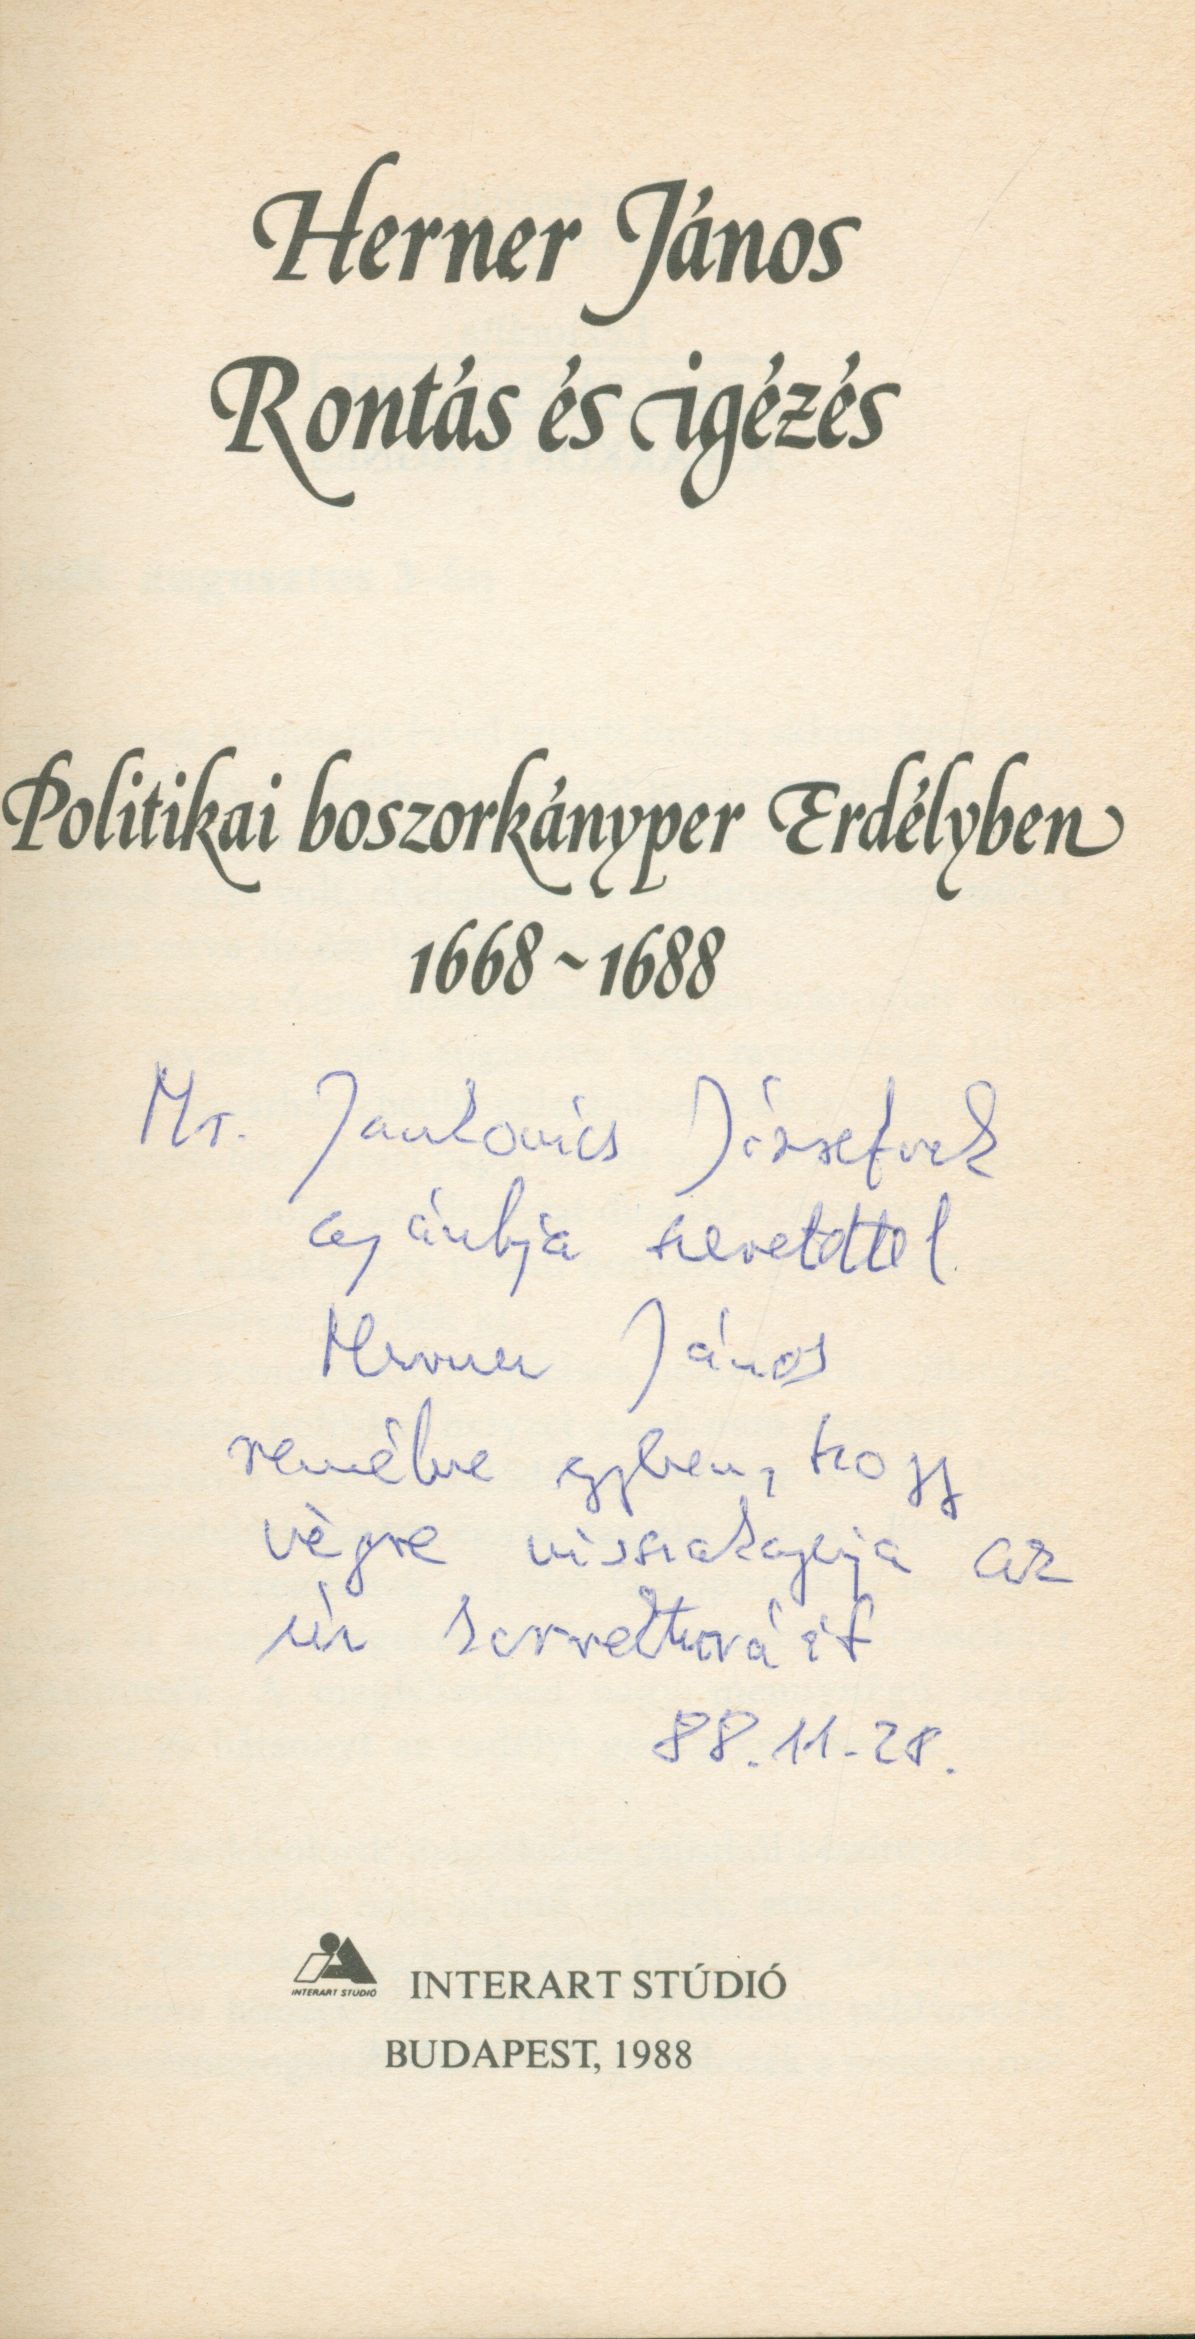 Herner János
Rontás és igézés
Politikai boszorkányper Erdélyben
1668~1688
Mr. Jankovics Józsefnek
ajánlja szeretettel
Herner János
remélve egyben, hogy
végre visszakapja az
úr korrektúráit
88.11.28.
INTERART STUDIO
INTERART STÚDIÓ
BUDAPEST, 1988